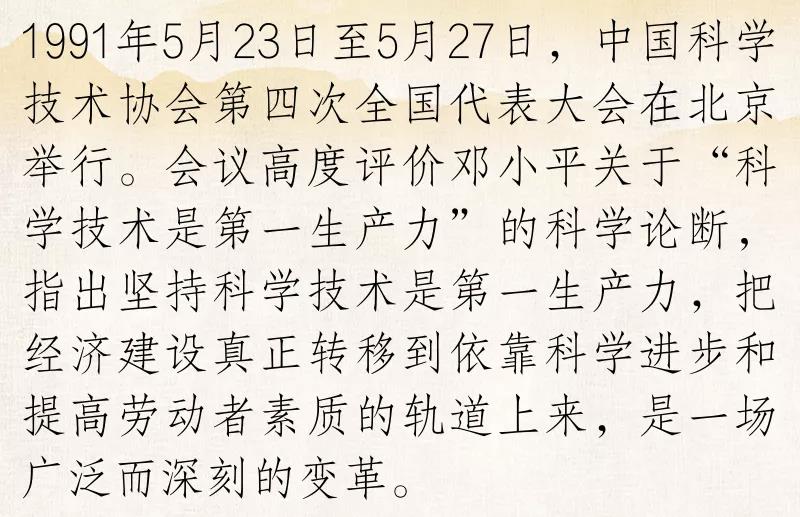 1991年5月23日至5月27日，中国科学
技术协会第四次全国代表大会在北京
举行。会议高度评价邓小平关于“科
学技术是第一生产力”的科学论断，
指出坚持科学技术是第一生产力，把
经济建设真正转移到依靠科学进步和
提高劳动者素质的轨道上来，是一场
广泛而深刻的变革。